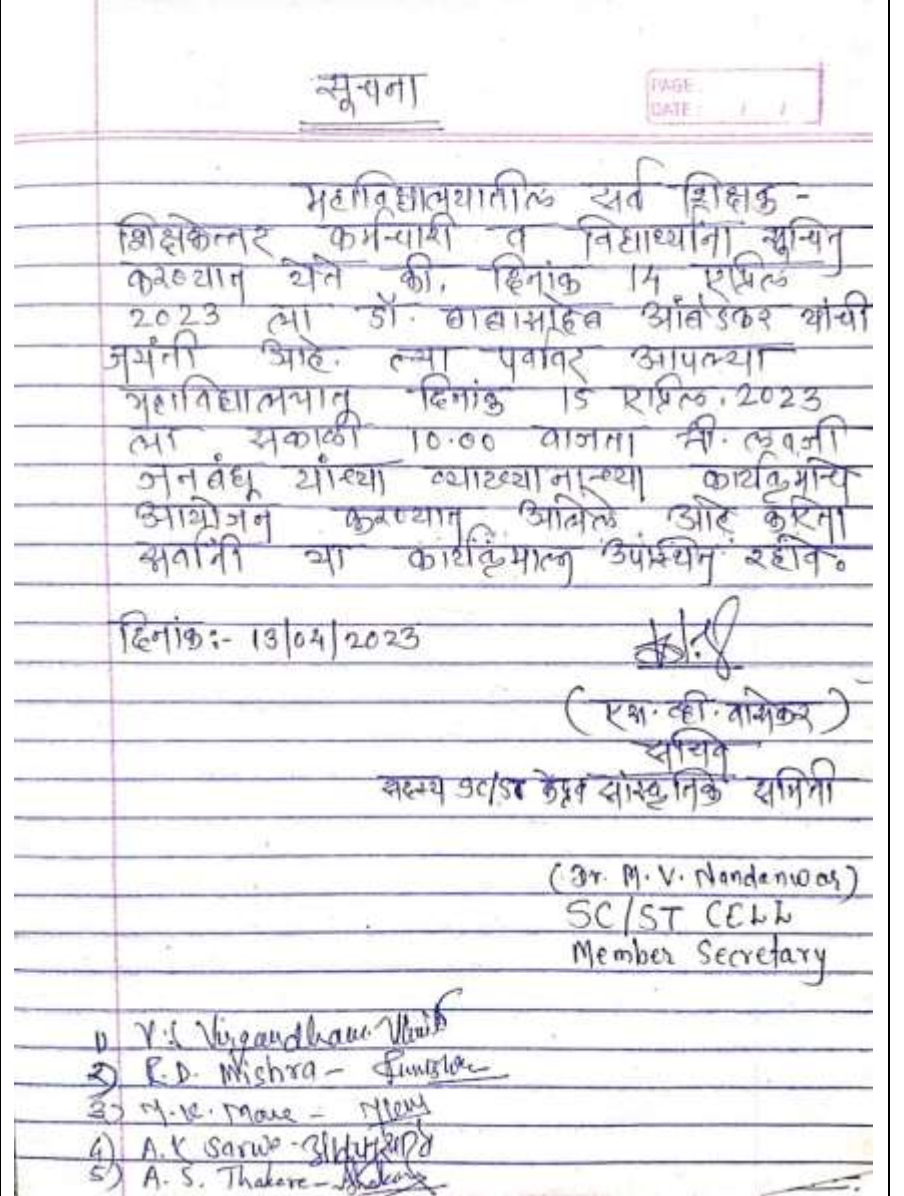 सूचना
PAGE:
DATE: / /
महाविद्यालयातील सर्व शिक्षक -
शिक्षकेत्तर कर्मचारी व विद्यार्थ्यांना सूचित
करण्यात येते की, दिनांक 14 एप्रिल
2023 ला डॉ. बाबासाहेब आंबेडकर यांची
जयंती आहे. त्या पर्वावर आपल्या
महाविद्यालयात दिनांक 15 एप्रिल, 2023
ला सकाळी 10.00 वाजता श्री. लवजी
जनबंधू यांच्या व्याख्यानाच्या कार्यक्रमाचे
आयोजन करण्यात आलेले आहे करिता
सर्वांनी या कार्यक्रमाला उपस्थित रहावे.
दिनांक:- 13/04/2023
(एस. व्ही. वासेकर)
सचिव
सदस्य SC/ST सांस्कृतिक समिती
(Dr. M. V. Nandanwar)
SC/ST CELL
Member Secretary
1)
2) R.D. Mishra -
3) More -
4) A.K Sarwe -
5) A. S. Thakare -